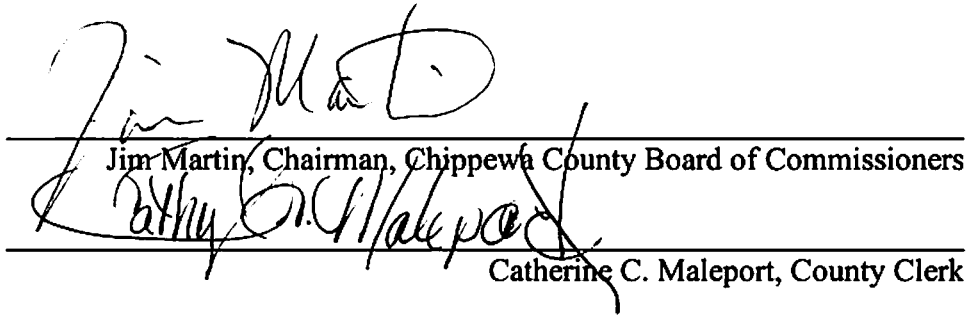 Jim Martin
Jim Martin, Chairman, Chippewa County Board of Commissioners
Cathy C. Maleport
Catherine C. Maleport, County Clerk